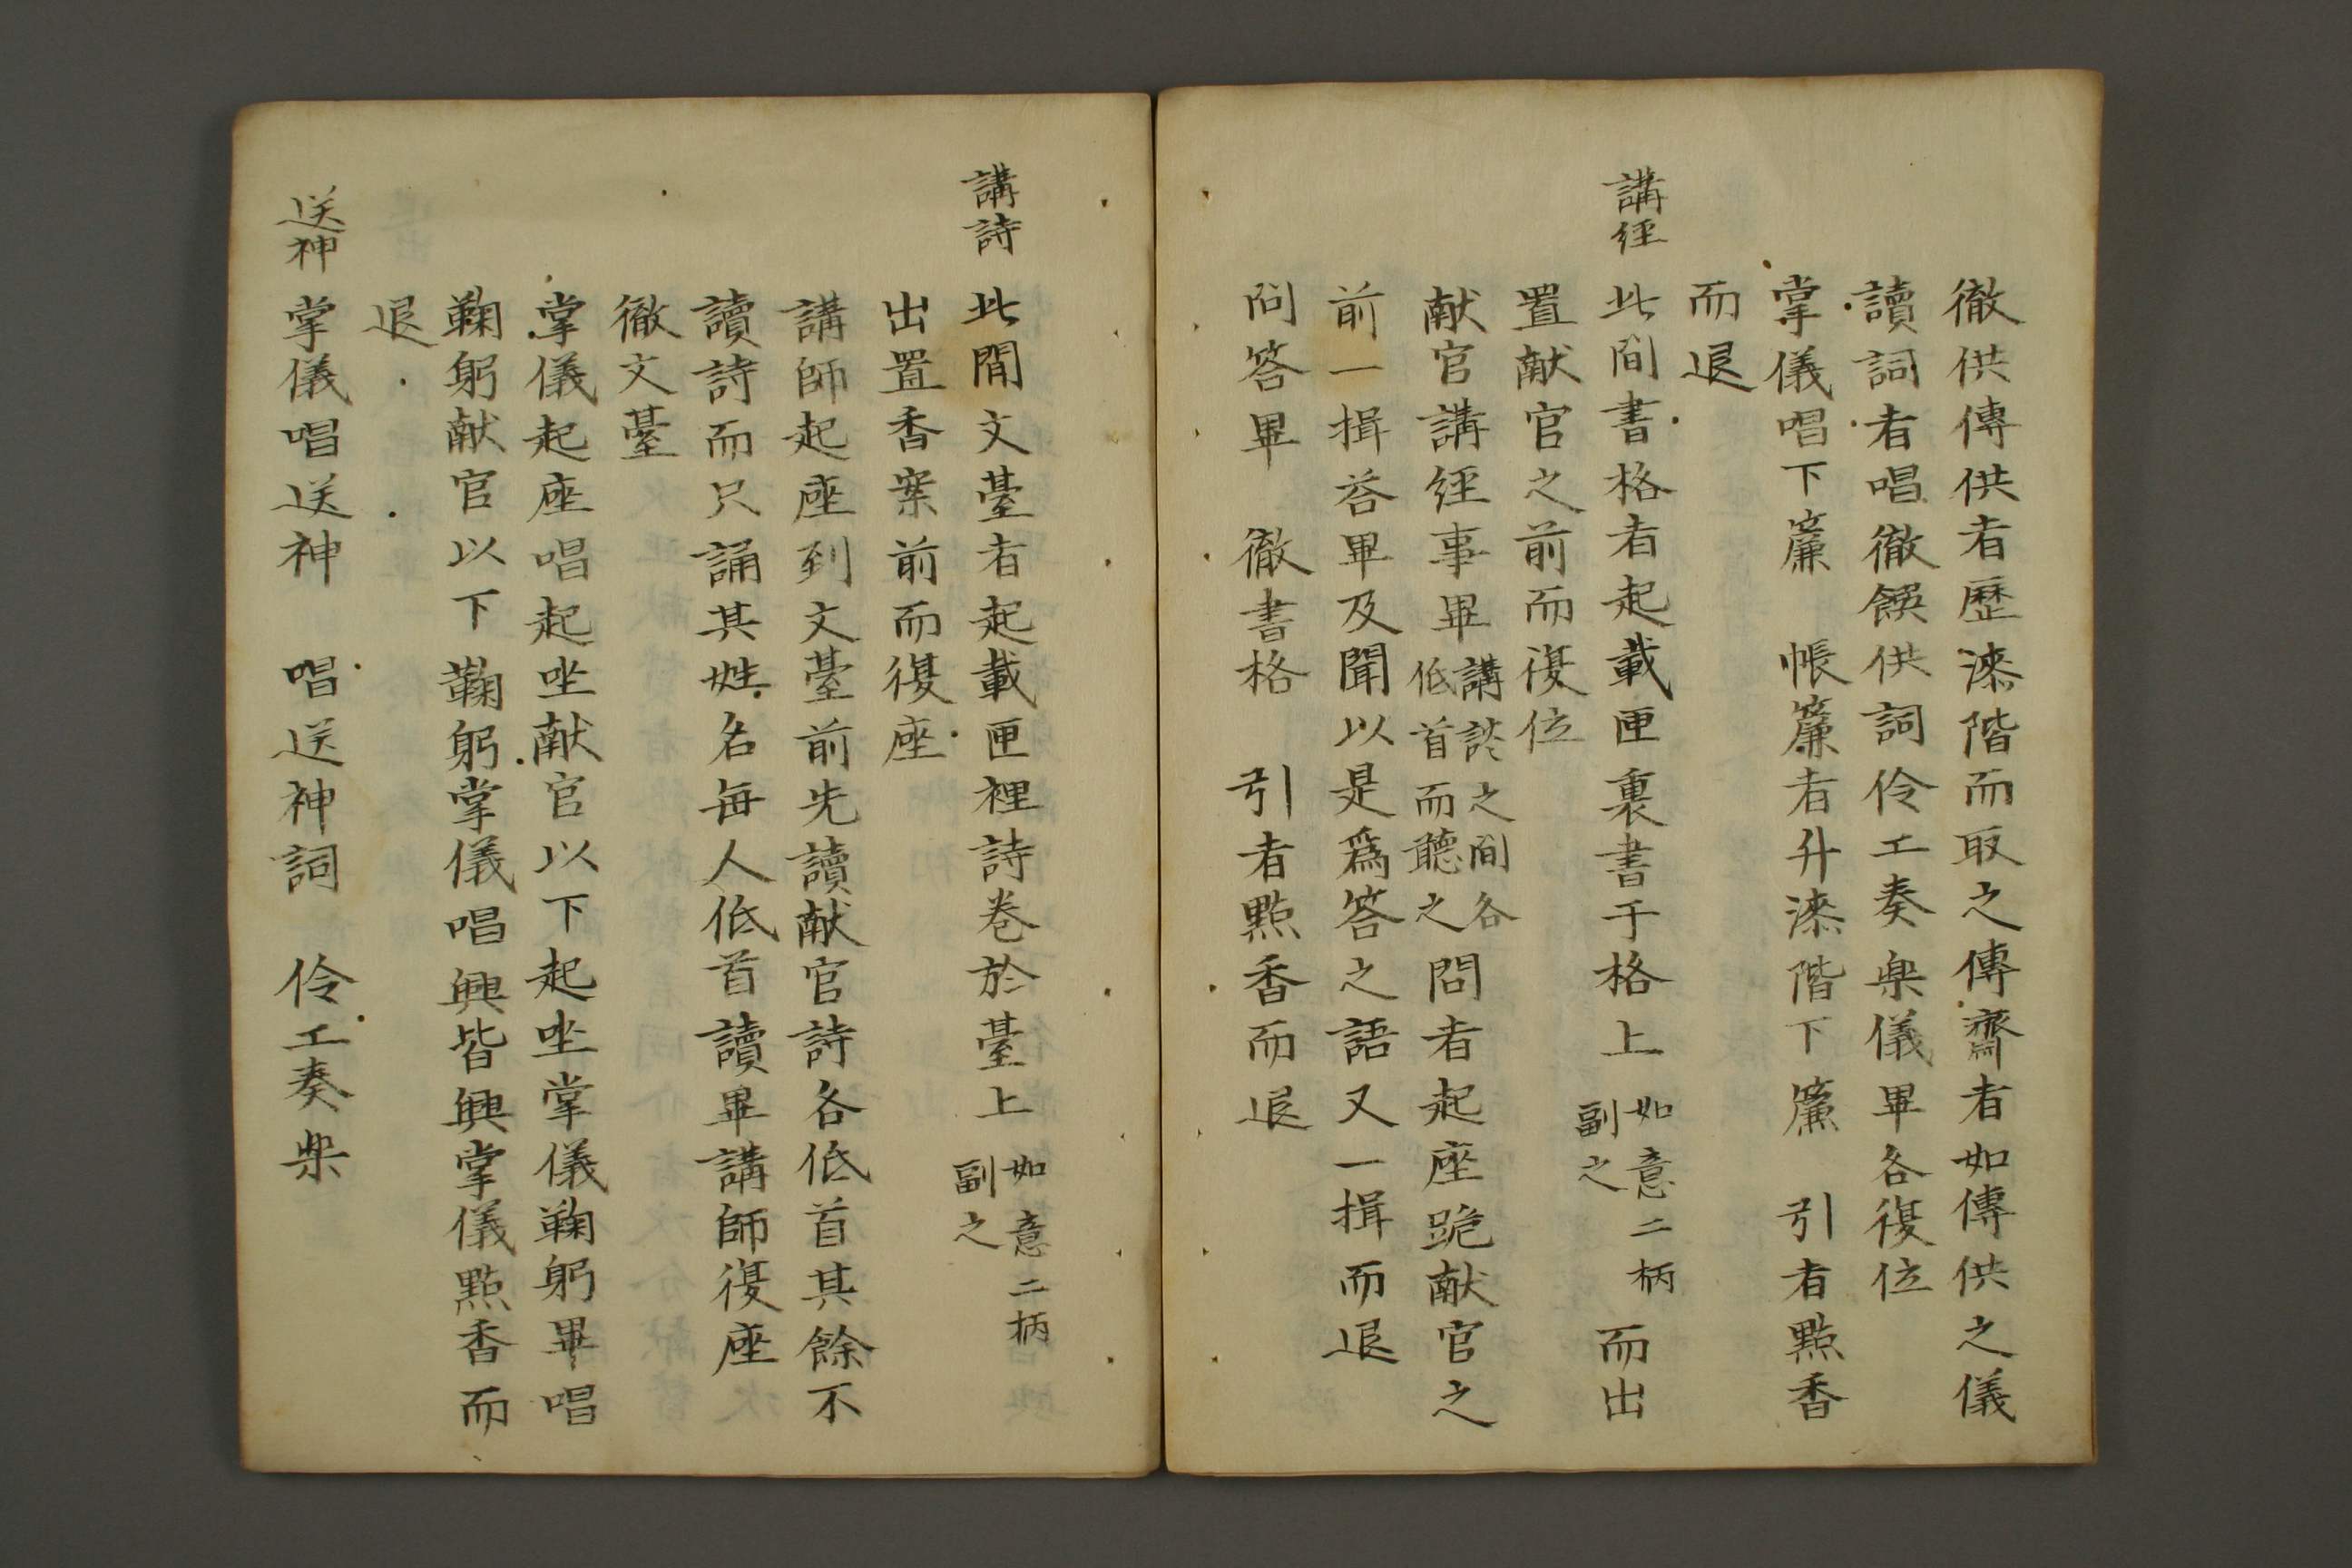 徹供傳供者歷漆階而取之傳齋者如傳供之儀
讀詞者唱徹饌供詞伶工奏楽儀畢各復位
掌儀唱下簾　帳簾者升漆階下簾　引者點香
而退
講經
此間書格者起載匣裏書于格上如意二柄副之而出
置献官之前而復位
献官講経事畢講談之間各低首而聽之問者起座跪献官之
前一揖答畢及聞以是爲答之語又一揖而退
問答畢　徹書格　引者點香而退
講詩
此間文臺者起載匣裡詩巻於臺上如意二柄副之
出置香案前而復座
講師起座到文臺前先讀献官詩各低首其餘不
讀詩而只誦其姓名毎人低首讀畢講師復座
徹文臺
掌儀起座唱起坐献官以下起坐掌儀鞠躬畢唱
鞠躬献官以下鞠躬掌儀唱興皆興掌儀點香而
退
送神
掌儀唱送神　唱送神詞　伶工奏楽